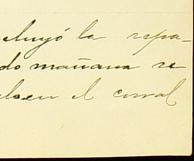 cluyó la repa-
do mañana se
alsen el corral